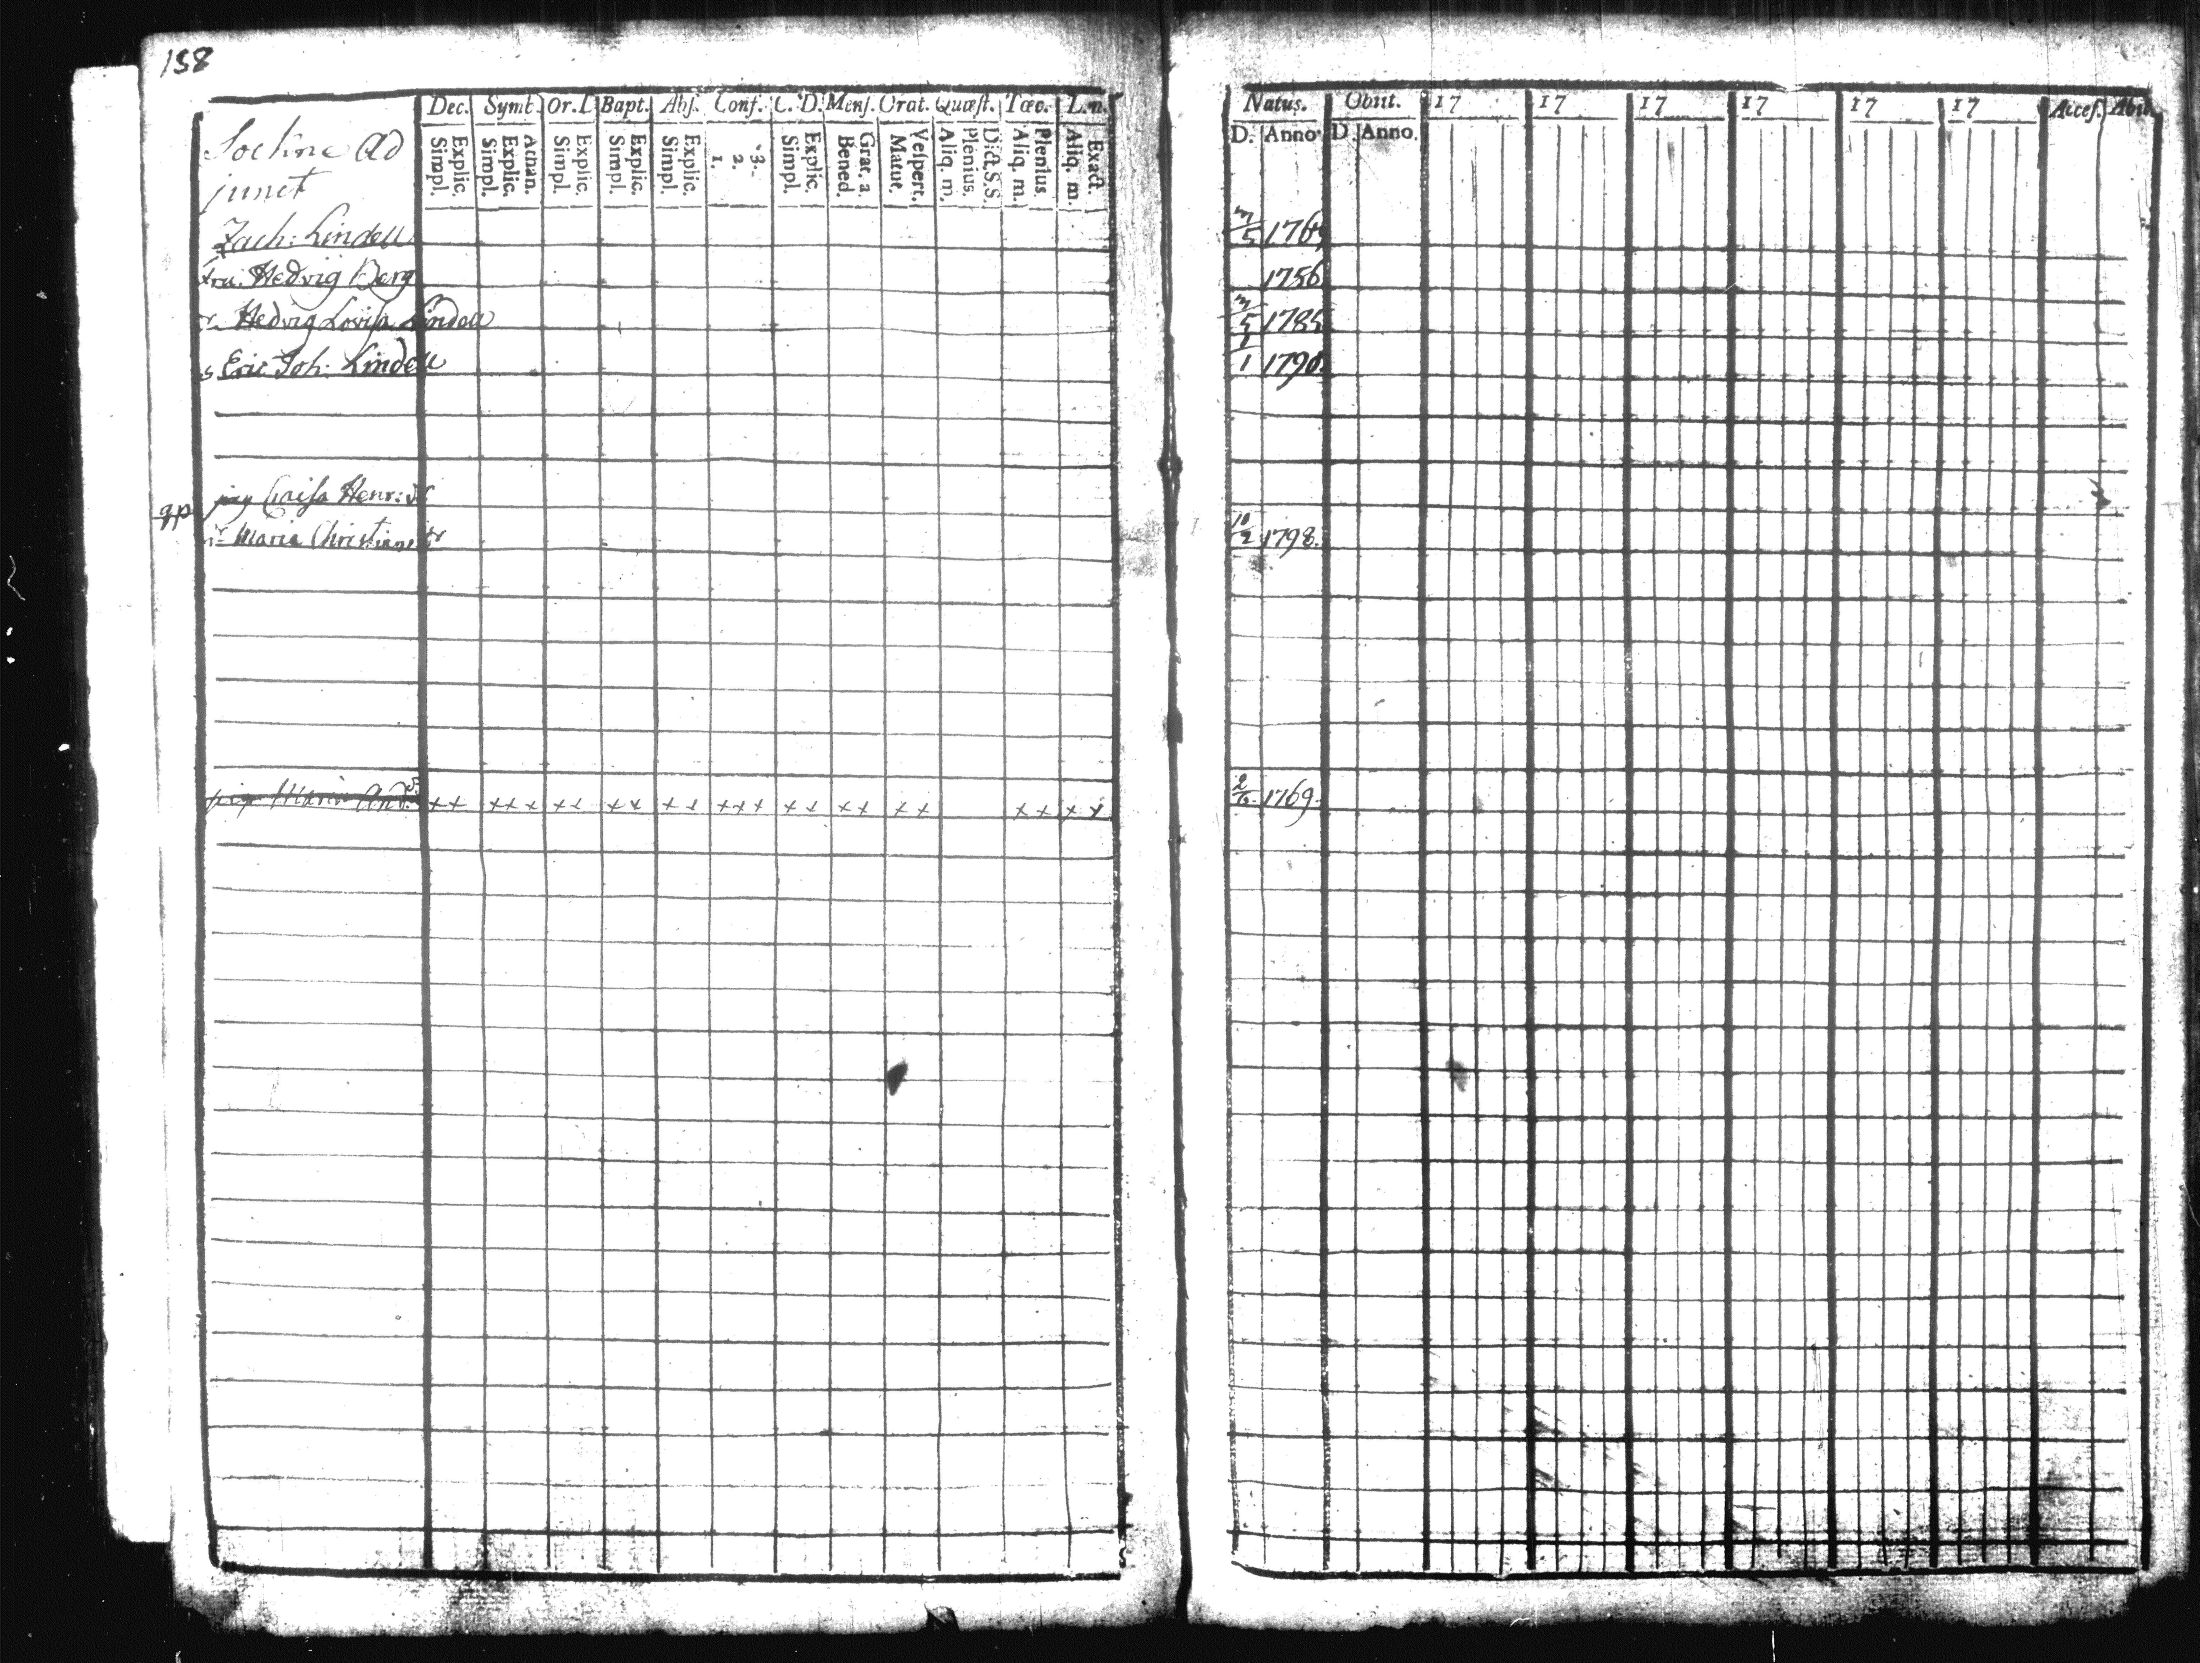 158
Dec. Symb. Or.D. Bapt. Abs. Conf. C.D. Mens. Orat. Quæst. Tæc. L.n.
Simpl. Explic. Simpl. Explic. Athan. Simpl. Explic. Simpl. Explic. Simpl. Explic. 1. 2. 3. Simpl. Explic. Bened. Grat. a. Matut. Vespert. Aliq. m. Plenius. Dict.S.S. Aliq. m. Plenius Aliq. m. Exact.
Natus. Obiit. 17 17 17 17 17 17 Acces. Abit.
D. Anno. D. Anno.
Sockne Ad
junct
Zach: Lindell 3/5 1764
fru. Hedvig Berg 1756
Hedvig Lovisa Lindell 3/5 1785
s Eric Joh: Lindell 1/1 1790.
pig Caisa Henr: dr
Maria Christians dr 10/2 1798.
pig Maria And: dr ++ +++ ++ ++ ++ +++ ++ ++ ++ ++ ++ 2/6 1769.